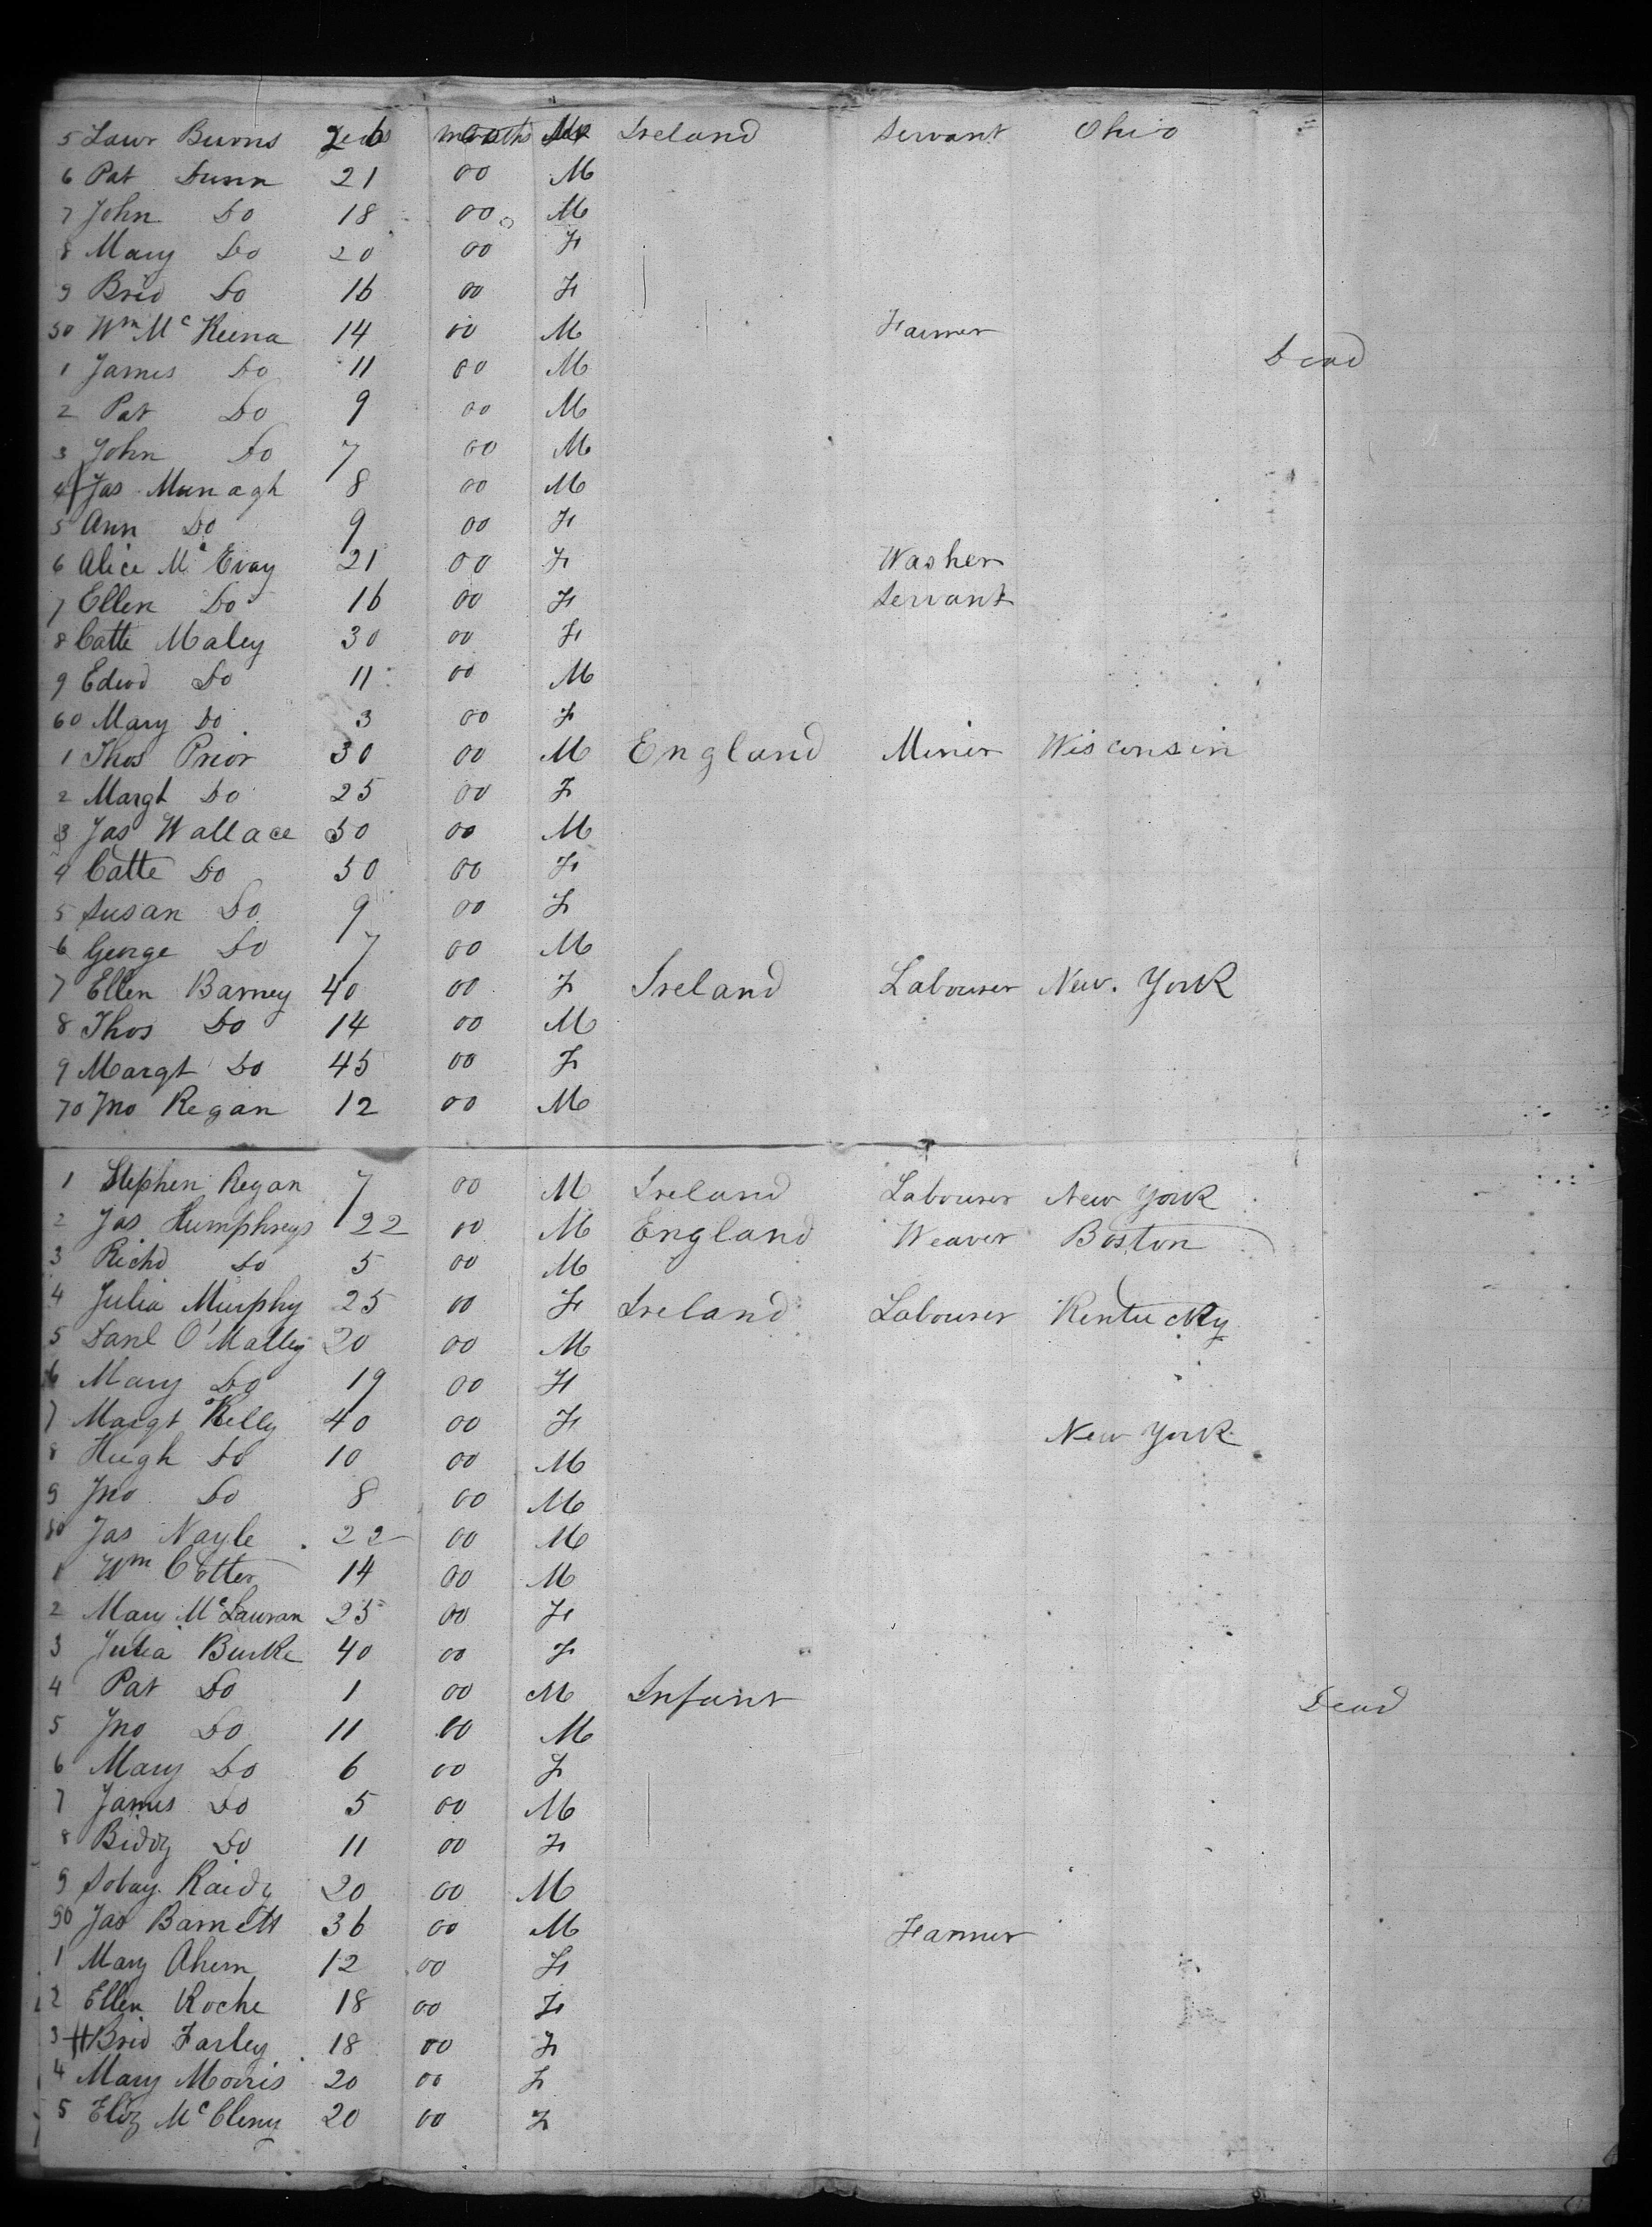 5 Lawr Burns 26 00 M Ireland Servant Ohio
6 Pat Dunn 21 00 M
7 John Do 18 00 M
8 Mary Do 20 00 F
9 Brid Do 16 00 F
50 Wm Mc Keena 14 00 M Farmer
1 James Do 11 00 M Dead
2 Pat Do 9 00 M
3 John Do 7 00 M
4 Jas Munagh 8 00 M
5 Ann Do 9 00 F
6 Alice Mc Evay 21 00 F Washer
7 Ellen Do 16 00 F Servant
8 Catte Maley 30 00 F
9 Edwd Do 11 00 M
60 Mary Do 3 00 F
1 Thos Prior 30 00 M England Miner Wisconsin
2 Margt Do 25 00 F
3 Jas Wallace 50 00 M
4 Catte Do 50 00 F
5 Susan Do 9 00 F
6 George Do 7 00 M
7 Ellen Barney 40 00 F Ireland Labourer New. York
8 Thos Do 14 00 M
9 Margt Do 45 00 F
70 Jno Regan 12 00 M
1 Stephen Regan 7 00 M Ireland Labourer New York
2 Jas Humphreys 22 00 M England Weaver Boston
3 Richd Do 5 00 M
4 Julia Murphy 25 00 F Ireland Labourer Kentucky
5 Danl O'Malley 20 00 M
6 Mary Do 19 00 F
7 Margt Kelly 40 00 F New York
8 Hugh Do 10 00 M
9 Jno Do 8 00 M
80 Jas Nayle 22 00 M
1 Wm Cotter 14 00 M
2 Mary Mc Lauran 25 00 F
3 Julia Burke 40 00 F
4 Pat Do 1 00 M Infant Dead
5 Jno Do 11 00 M
6 Mary Do 6 00 F
7 James Do 5 00 M
8 Biddy Do 11 00 F
9 Raidy 20 00 M
90 Jas Barnett 36 00 M Farmer
1 Mary Ahern 12 00 F
2 Ellen Roche 18 00 F
3 Brid Farley 18 00 F
4 Mary Morris 20 00 F
5 Eliz Mc Cleny 20 00 F